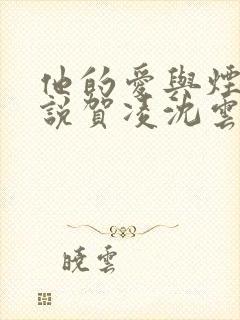 他的愛與煙
說賀凌沈雲
曉雲